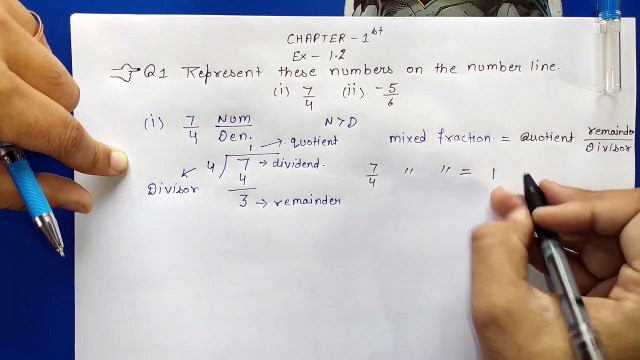 CHAPTER - 1st
Ex - 1.2
Q1 Represent these numbers on the number line.
(i) 7/4 (ii) -5/6
(i) 7/4 Num/Den. N>D
1 → quotient
mixed fraction = Quotient remainder/Divisor
4 7 → dividend.
Divisor 4
3 → remainder
7/4 " " = 1